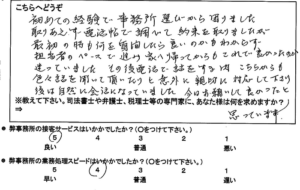 こちらへどうぞ
初めての経験で事務所選びから困りました
取りあえず電話帳で調べて約束を取りましたが
最初の時も何を質問したら良いのかもわからず
担当者のペースで進み
迷っていました その後電話で話をする内 こちらからも
色々話を聞いて頂いたりと意外に親切に対応して下さり
後は自然に会話になっていました 今はお願いして良かったと
思っています
※教えて下さい。司法書士や弁護士、税理士等の専門家に、あなた様は何を求めますか？
⇒
● 弊事務所の接客サービスはいかがでしたか？（○をつけて下さい。）
5 4 3 2 1
良い 普通 悪い
● 弊事務所の業務処理スピードはいかがでしたか？（○をつけて下さい。）
5 4 3 2 1
早い 普通 遅い